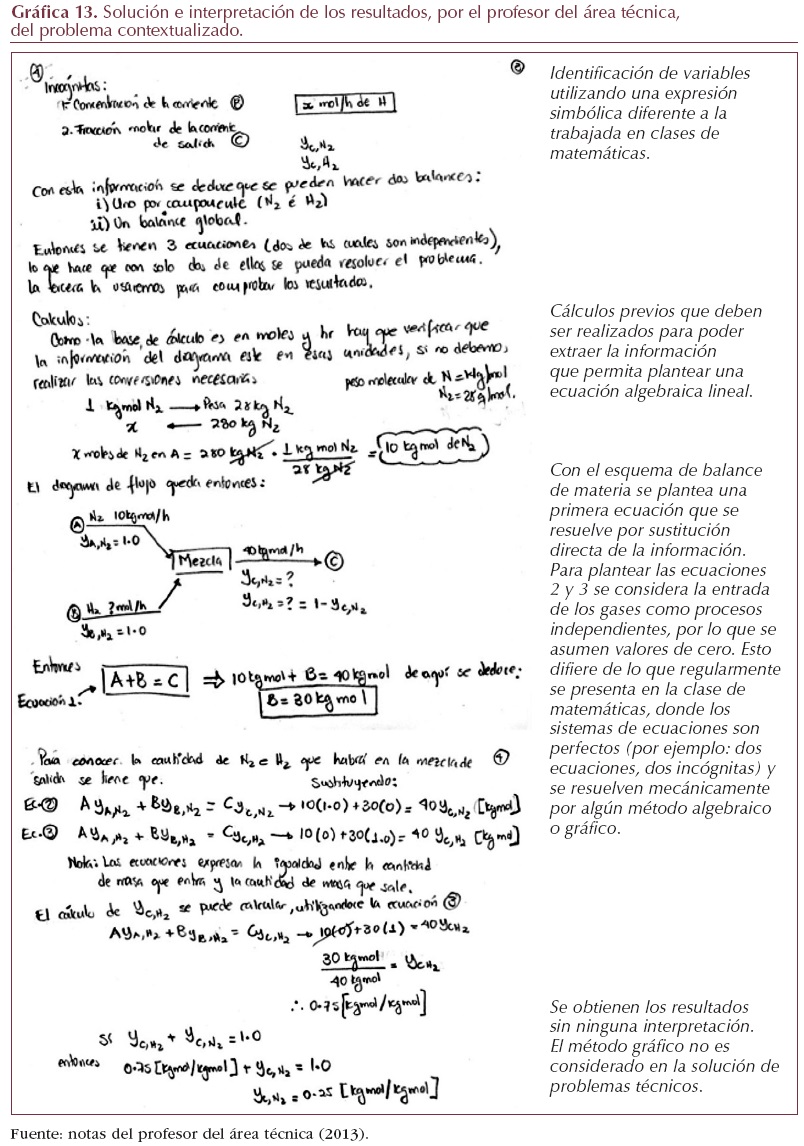 Gráfica 13. Solución e interpretación de los resultados, por el profesor del área técnica,
del problema contextualizado.
Incógnitas:
1. Concentración de la corriente B
x mol/h de H
2. Fracción molar de la corriente
de salida C
yc,N2
yc,H2
Con esta información se deduce que se pueden hacer dos balances:
i) Uno por componente (N2 é H2)
ii) Un balance global.
Entonces se tienen 3 ecuaciones (dos de las cuales son independientes),
lo que hace que con solo dos de ellas se pueda resolver el problema.
la tercera la usaremos para comprobar los resultados.
Calculos:
Como la base de cálculo es en moles y hr hay que verificar que
la información del diagrama este en esas unidades, si no debemos
realizar las conversiones necesarias
peso molecular de N = 14g/mol
N2 = 28g/mol.
1 kgmol N2 → Pesa 28 kg N2
x ← 280 kg N2
x moles de N2 en A = 280 kg N2 · 1 kg mol N2 / 28 kg N2 = 10 kgmol de N2
El diagrama de flujo queda entonces:
A N2 10kgmol/h
yA,N2 = 1.0
Mezcla
40 kgmol/h
C
yc,N2 = ?
yc,H2 = ? = 1 - yc,N2
B H2 ? mol/h
yB,H2 = 1.0
Entonces
Ecuación 1.
A+B = C ⇒ 10 kgmol + B = 40 kgmol de aquí se deduce:
B = 30 kg mol
Para conocer la cantidad de N2 e H2 que habrá en la mezcla de 4
salida se tiene que.
Sustituyendo:
Ec. 2 A yA,N2 + B yB,N2 = C yc,N2 → 10(1.0) + 30(0) = 40 yc,N2 [kgmol]
Ec. 3 A yA,H2 + B yB,H2 = C yc,H2 → 10(0) + 30(1.0) = 40 yc,H2 [kg mol]
Nota: Las ecuaciones expresan la igualdad entre la cantidad
de masa que entra y la cantidad de masa que sale.
El cálculo de yc,H2 se puede calcular, utilizandore la ecuación 3
A yA,H2 + B yB,H2 = C yc,H2 → 10(0) + 30(1) = 40 ycH2
30 kgmol / 40 kgmol = ycH2
∴ 0.75 [kgmol/kgmol]
Si yc,H2 + yc,N2 = 1.0
entonces 0.75 [kgmol/kgmol] + yc,N2 = 1.0
yc,N2 = 0.25 [kgmol/kgmol]
Identificación de variables
utilizando una expresión
simbólica diferente a la
trabajada en clases de
matemáticas.
Cálculos previos que deben
ser realizados para poder
extraer la información
que permita plantear una
ecuación algebraica lineal.
Con el esquema de balance
de materia se plantea una
primera ecuación que se
resuelve por sustitución
directa de la información.
Para plantear las ecuaciones
2 y 3 se considera la entrada
de los gases como procesos
independientes, por lo que se
asumen valores de cero. Esto
difiere de lo que regularmente
se presenta en la clase de
matemáticas, donde los
sistemas de ecuaciones son
perfectos (por ejemplo: dos
ecuaciones, dos incógnitas) y
se resuelven mecánicamente
por algún método algebraico
o gráfico.
Se obtienen los resultados
sin ninguna interpretación.
El método gráfico no es
considerado en la solución de
problemas técnicos.
Fuente: notas del profesor del área técnica (2013).